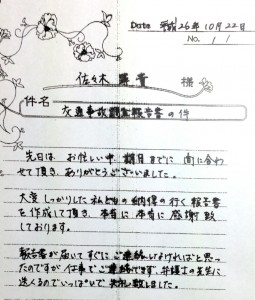 Date 平成26年10月22日
No. 1/1
佐々木 貴 様
件名 交通事故 報告書の件
先日は お忙しい中 期日までに 間に合わ
せて頂き ありがとうございました。
大変 しっかりした 私どもの 納得の行く 報告書
を作成して頂き 本当に 本当に 感謝 致
しております。
報告書が届いて すぐに ご連絡しなければと思っ
たのですが 仕事でご連絡できず、弁護士の先生に
送くるのでいっぱいで 失礼致しました。